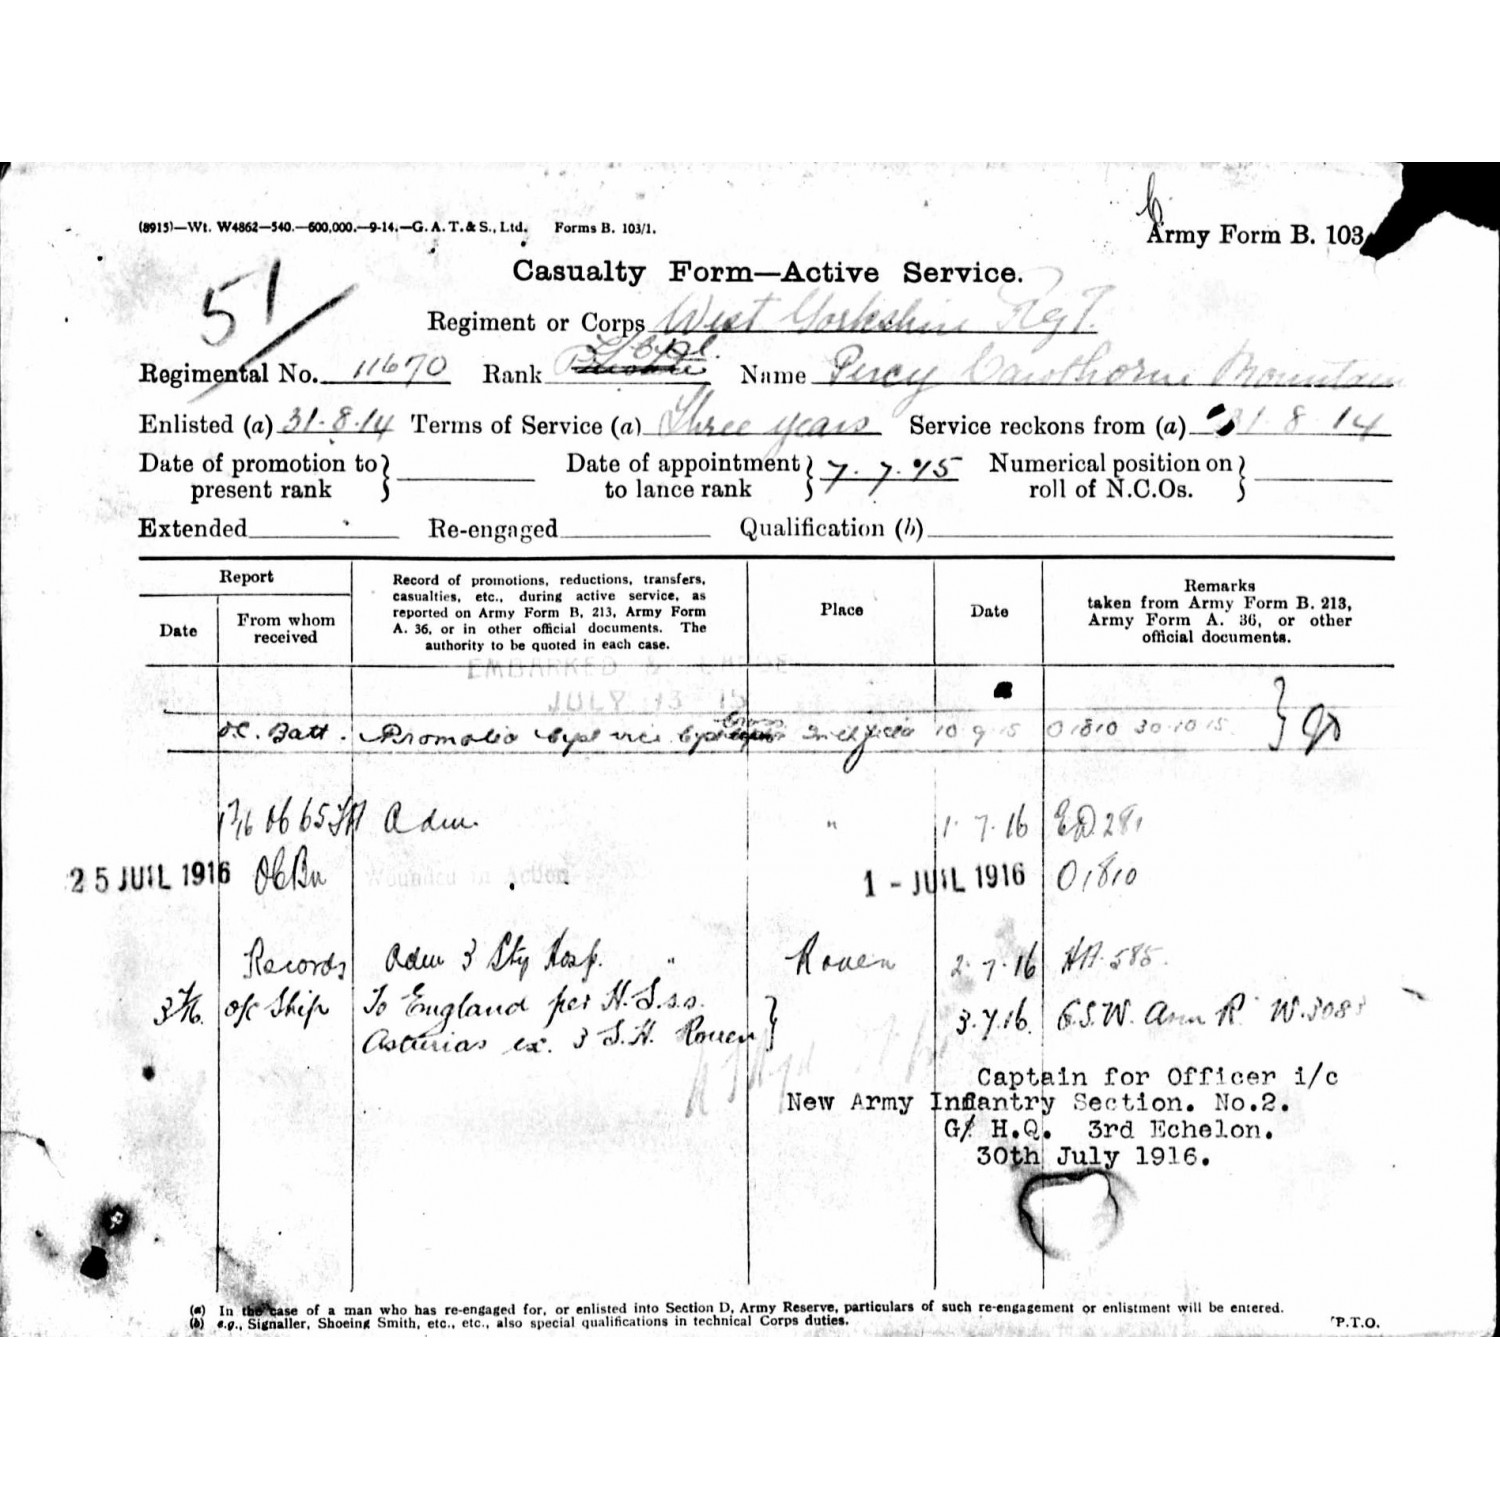 (8915)—Wt. W4862—540.—600,000.—9-14.—G. A. T. & S., Ltd. Forms B. 103/1.
Army Form B. 103
51
Casualty Form—Active Service.
Regiment or Corps West Yorkshire Regt.
Regimental No. 11670 Rank Name Percy Cawthorne Mountain
Enlisted (a) 31.8.14 Terms of Service (a) Three years Service reckons from (a) 31.8.14
Date of promotion to present rank Date of appointment to lance rank 7.7.15 Numerical position on roll of N.C.Os.
Extended Re-engaged Qualification (b)
Report
Date
From whom received
Record of promotions, reductions, transfers, casualties, etc., during active service, as reported on Army Form B. 213, Army Form A. 36, or in other official documents. The authority to be quoted in each case.
Place
Date
Remarks taken from Army Form B. 213, Army Form A. 36, or other official documents.
EMBARKED
JULY 13 15
O.C. Batt. Promoted Cpl vice Cpl In the field 10.9.15 O1810 30.10.15
Adm. " 1.7.16 ED 281
25 JUIL 1916 OC Bn Wounded in Action 1 - JUIL 1916 O1810
Records Adm 3 Sty Hosp. " Rouen 2.7.16 HA.585.
O/C Ship To England per H.S.s.s. 3.7.16. G.S.W. Arm R. W.3083
Asturias ex. 3 S.H. Rouen
Captain for Officer i/c
New Army Infantry Section. No.2.
G/ H.Q. 3rd Echelon.
30th July 1916.
(a) In the case of a man who has re-engaged for, or enlisted into Section D, Army Reserve, particulars of such re-engagement or enlistment will be entered.
(b) e.g., Signaller, Shoeing Smith, etc., etc., also special qualifications in technical Corps duties.
P.T.O.